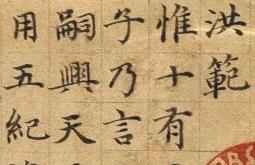 洪範
惟十有
子乃言
嗣興天
用五紀